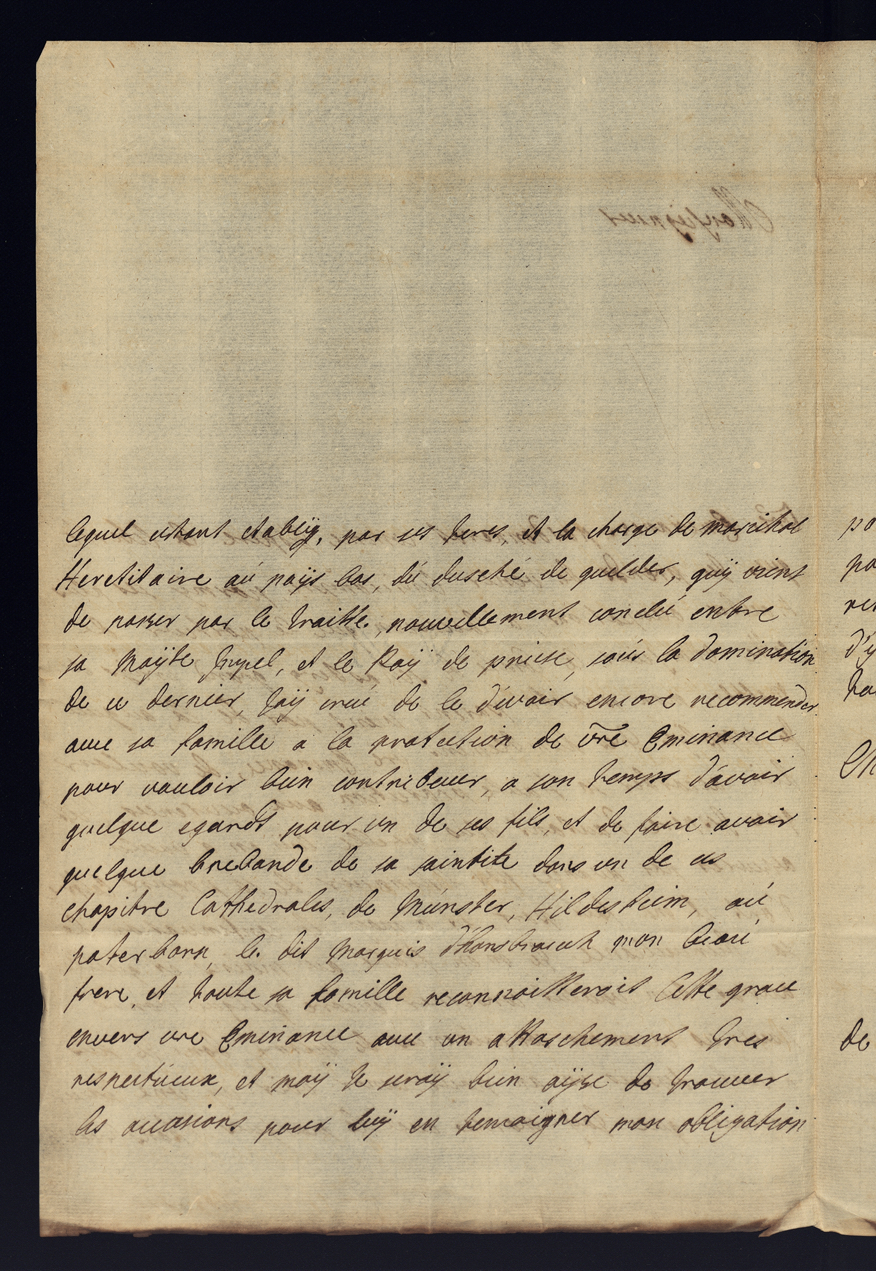 lequel estant etablÿ, par ses teres, et la charge de marcihal
Heretitaire aú paÿs bas, dú dusché de gueldes, quÿ vient
de passer par le traitté, nouvellement conclú entre
sa Maÿte Impel, et le Roÿ de prúse, soús la domination
de ce dernier, Jaÿ crúe de le d'evoir encore recommender
avec sa famille a la protection de vre Eminance
pour vouloir bien contribeuer, a son temps d'avoir
quelque egards pour un de ses fils et de faire avoir
quelque brebande de sa saintite dans un de ces
chapitre Cathedrales, de Múnster, Hildesheim, oú
paterborn, le dit Marquis d'Hansbroeck mon beaú
frere, et toute sa famille reconnoitterois Cette grace
envers vre Eminance avec un attaschement tres
respectúeux, et moÿ Je seraÿ bien aÿse de trouver
les occasions pour luÿ en temoigner mon obligation
de